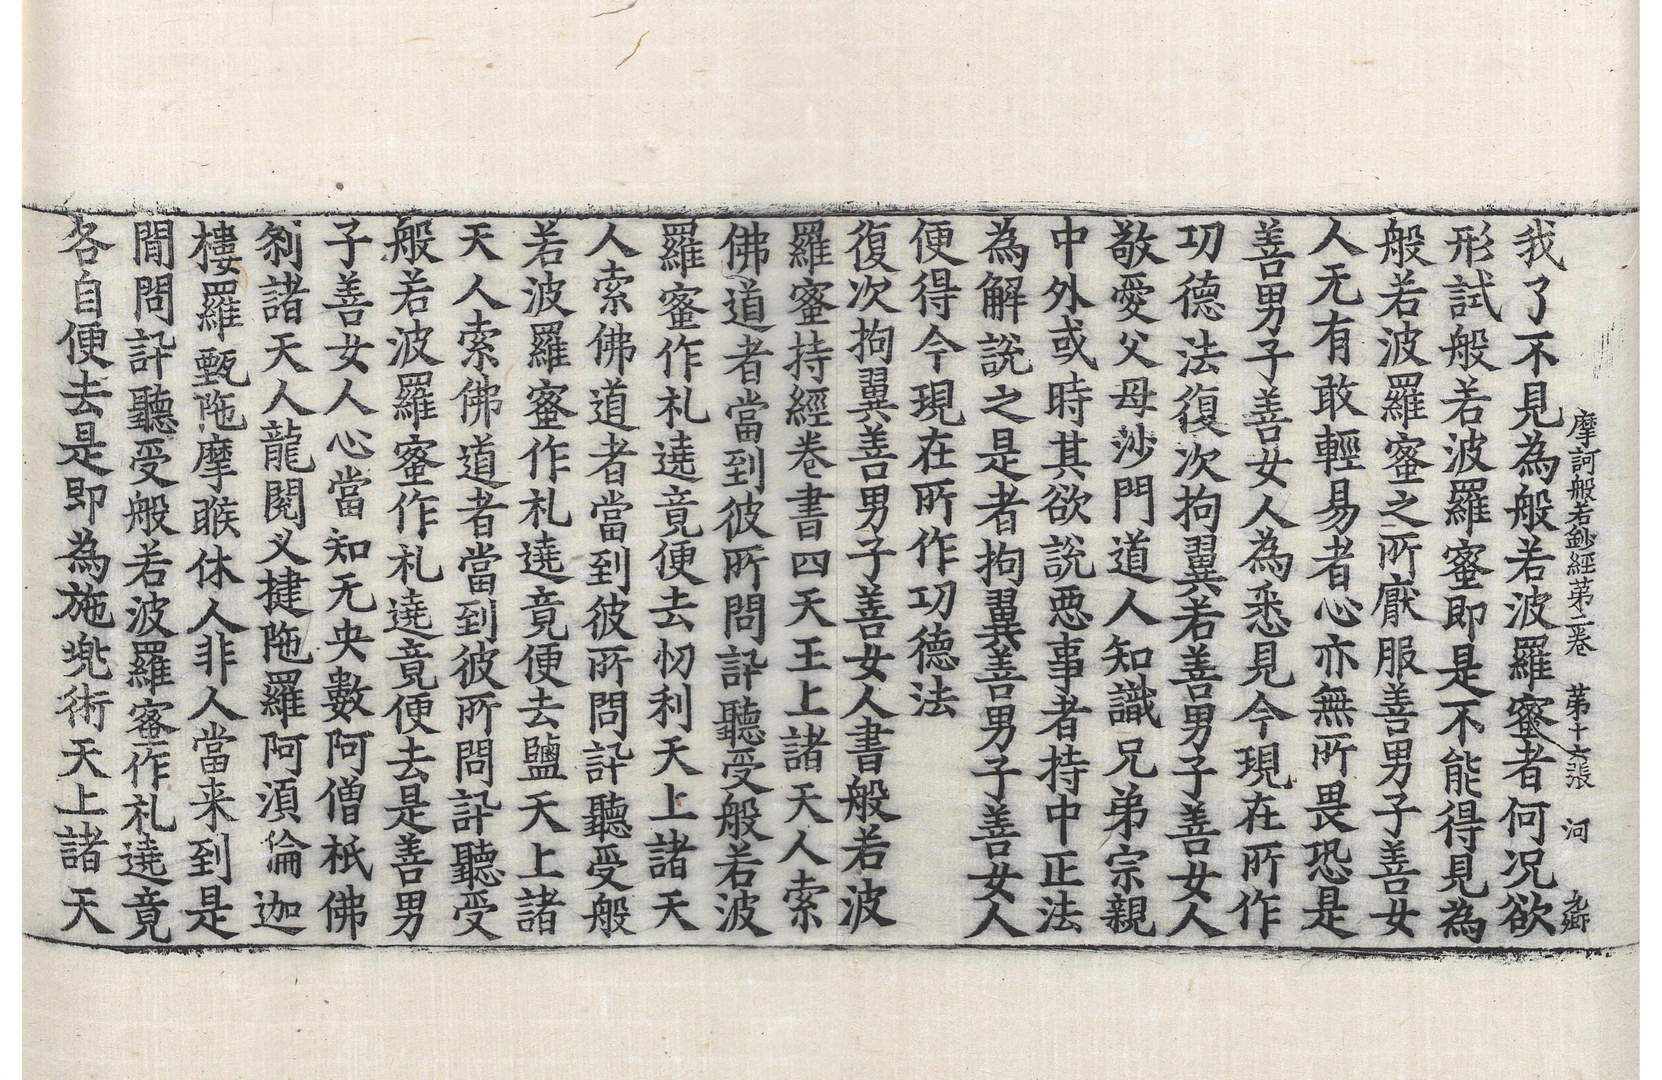 摩訶般若鈔經第二卷　第十六張　河　九卿
我了不見為般若波羅蜜者何况欲
形試般若波羅蜜即是不能得見為
般若波羅蜜之所厭服善男子善女
人无有敢輕易者心亦無所畏恐是
善男子善女人為悉見今現在所作
功德法復次拘翼若善男子善女人
敬愛父母沙門道人知識兄弟宗親
中外或時其欲說惡事者持中正法
為解說之是者拘翼善男子善女人
便得今現在所作功德法
復次拘翼善男子善女人書般若波
羅蜜持經卷書四天王上諸天人索
佛道者當到彼所問訊聽受般若波
羅蜜作礼遶竟便去忉利天上諸天
人索佛道者當到彼所問訊聽受般
若波羅蜜作礼遶竟便去鹽天上諸
天人索佛道者當到彼所問訊聽受
般若波羅蜜作礼遶竟便去是善男
子善女人心當知无央數阿僧祇佛
刹諸天人龍閱叉揵陁羅阿湏倫迦
樓羅甄陁摩睺休人非人當来到是
間問訊聽受般若波羅蜜作礼遶竟
各自便去是即為施兠術天上諸天